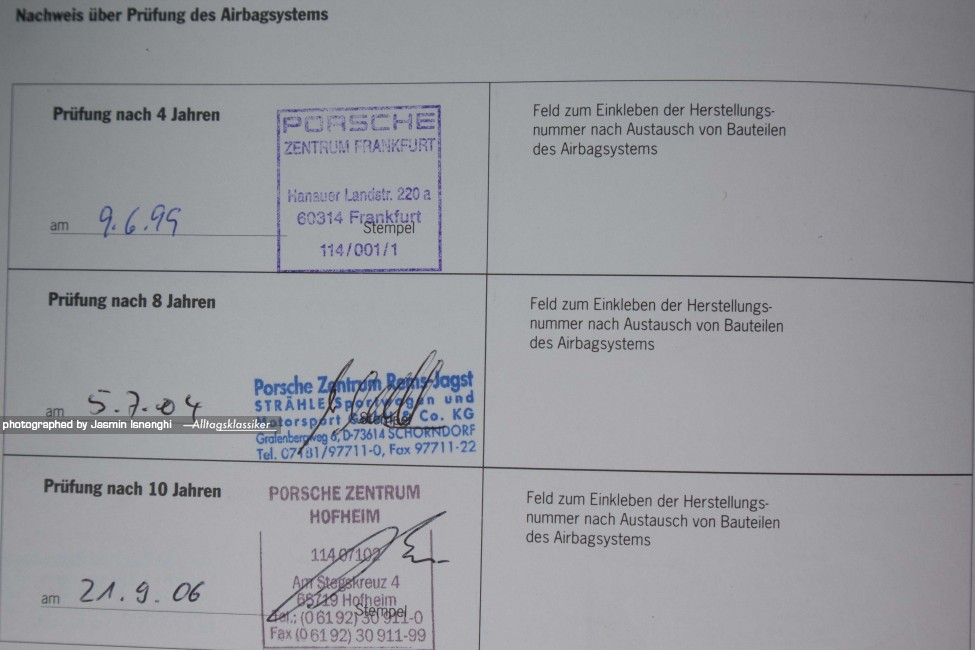 Nachweis über Prüfung des Airbagsystems
Prüfung nach 4 Jahren
PORSCHE
ZENTRUM FRANKFURT
Hanauer Landstr. 220 a
60314 Frankfurt
Stempel
114/001/1
am 9.6.99
Feld zum Einkleben der Herstellungs-
nummer nach Austausch von Bauteilen
des Airbagsystems
Prüfung nach 8 Jahren
Porsche Zentrum Rems-Jagst
STRÄHLE Sportwagen und
Motorsport GmbH & Co. KG
Grafenbergweg 6, D-73614 SCHORNDORF
Tel. 07181/97711-0, Fax 97711-22
am 5.7.04
Feld zum Einkleben der Herstellungs-
nummer nach Austausch von Bauteilen
des Airbagsystems
photographed by Jasmin Isnenghi — Alltagsklassiker
Prüfung nach 10 Jahren
PORSCHE ZENTRUM
HOFHEIM
11407102
Am Stegskreuz 4
65719 Hofheim
Stempel
Tel.: (0 61 92) 30 911-0
Fax (0 61 92) 30 911-99
am 21.9.06
Feld zum Einkleben der Herstellungs-
nummer nach Austausch von Bauteilen
des Airbagsystems